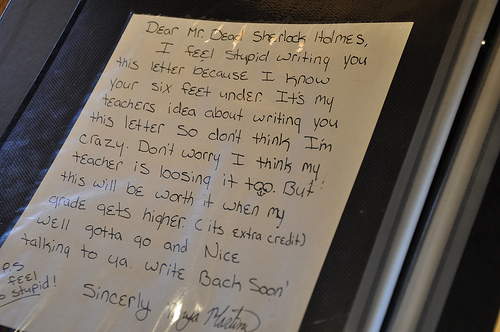 Dear Mr. Dead Sherlock Holmes,
I feel stupid writing you
this letter because I know
your six feet under. It's my
teachers idea about writing you
this letter so don't think I'm
crazy. Don't worry I think my
teacher is loosing it too. But!
this will be worth it when my
grade gets higher (its extra credit)
well gotta go and Nice
talking to ya. write Bach Soon!
Sincerly
P.S
feel
stupid!